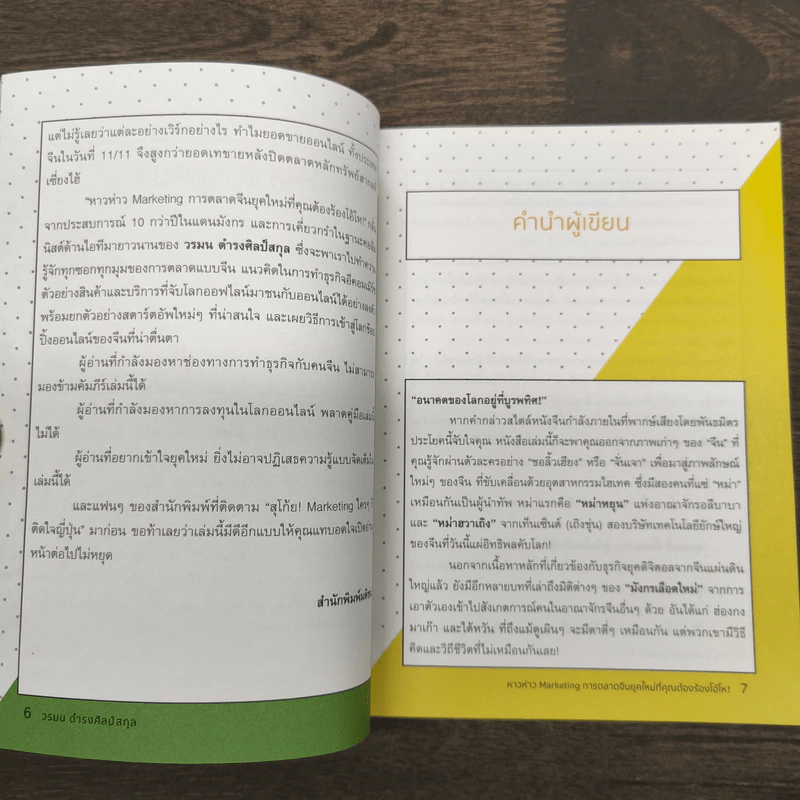 แต่ไม่รู้เลยว่าแต่ละอย่างเวิร์กอย่างไร ทำไมยอดขายออนไลน์ ทั้งประเทศ
จีนในวันที่ 11/11 จึงสูงกว่ายอดเทขายหลังปิดตลาดหลักทรัพย์
เซี่ยงไฮ้
"หาวห่าว Marketing การตลาดจีนยุคใหม่ที่คุณต้องร้องโอ้โห!"
จากประสบการณ์ 10 กว่าปีในแดนมังกร และการเคี่ยวกรำในฐานะคอลัม
นิสต์ด้านไอทีมายาวนานของ วรมน ดำรงศิลป์สกุล ซึ่งจะพาเราไปทำความ
รู้จักทุกซอกทุกมุมของการตลาดแบบจีน แนวคิดในการทำธุรกิจอีคอมเมิร์ซ
ตัวอย่างสินค้าและบริการที่จับโลกออฟไลน์มาชนกับออนไลน์ได้อย่างลงตัว
พร้อมยกตัวอย่างสตาร์ตอัพใหม่ๆ ที่น่าสนใจ และเผยวิธีการเข้าสู่โลกช้อป
ปิ้งออนไลน์ของจีนที่น่าตื่นตา
ผู้อ่านที่กำลังมองหาช่องทางการทำธุรกิจกับคนจีน ไม่สามารถ
มองข้ามคัมภีร์เล่มนี้ได้
ผู้อ่านที่กำลังมองหาการลงทุนในโลกออนไลน์ พลาดคู่มือเล่มนี้
ไม่ได้
ผู้อ่านที่อยากเข้าใจยุคใหม่ ยิ่งไม่อาจปฏิเสธความรู้แบบจัดเต็มใน
เล่มนี้ได้
และแฟนๆ ของสำนักพิมพ์ที่ติดตาม "สุโก้ย! Marketing ใครๆ ก็
ติดใจญี่ปุ่น" มาก่อน ขอท้าเลยว่าเล่มนี้มีดีอีกแบบให้คุณแทบอดใจเปิดอ่าน
หน้าต่อไปไม่หยุด
สำนักพิมพ์มติชน
6 วรมน ดำรงศิลป์สกุล
คำนำผู้เขียน
"อนาคตของโลกอยู่ที่บูรพทิศ!"
หากคำกล่าวสไตล์หนังจีนกำลังภายในที่พากษ์เสียงโดยพันธมิตร
ประโยคนี้จับใจคุณ หนังสือเล่มนี้ก็จะพาคุณออกจากภาพเก่าๆ ของ "จีน" ที่
คุณรู้จักผ่านตัวละครอย่าง "ชอลิ้วเฮียง" หรือ "จั่นเจา" เพื่อมาสู่ภาพลักษณ์
ใหม่ๆ ของจีน ที่ขับเคลื่อนด้วยอุตสาหกรรมไฮเทค ซึ่งมีสองคนที่แซ่ "หม่า"
เหมือนกันเป็นผู้นำทัพ หม่าแรกคือ "หม่าหยุน" แห่งอาณาจักรอลีบาบา
และ "หม่าฮวาเถิง" จากเท็นเซ็นต์ (เถิงซุ่น) สองบริษัทเทคโนโลยียักษ์ใหญ่
ของจีนที่วันนี้แผ่อิทธิพลคับโลก!
นอกจากเนื้อหาหลักที่เกี่ยวข้องกับธุรกิจยุคดิจิตอลจากจีนแผ่นดิน
ใหญ่แล้ว ยังมีอีกหลายบทที่เล่าถึงมิติต่างๆ ของ "มังกรเลือดใหม่" จากการ
เอาตัวเองเข้าไปสังเกตการณ์คนในอาณาจักรจีนอื่นๆ ด้วย อันได้แก่ ฮ่องกง
มาเก๊า และไต้หวัน ที่ถึงแม้ดูเผินๆ จะมีตาตี่ๆ เหมือนกัน แต่พวกเขามีวิธี
คิดและวิถีชีวิตที่ไม่เหมือนกันเลย!
หาวห่าว Marketing การตลาดจีนยุคใหม่ที่คุณต้องร้องโอ้โห! 7